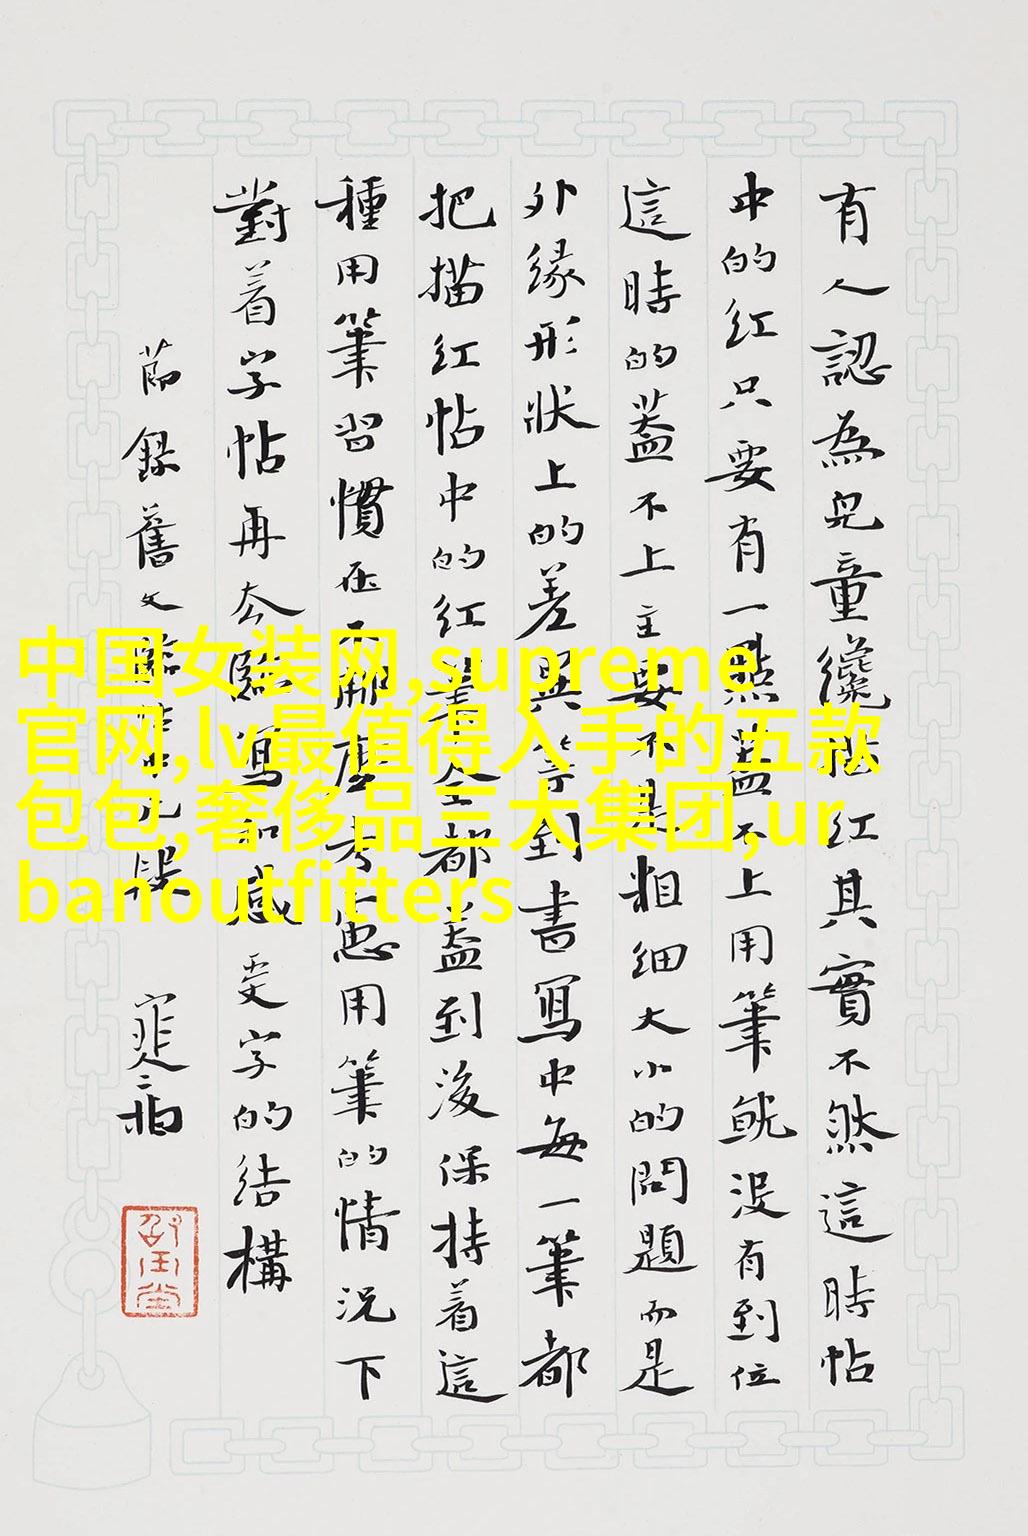 有人認為兒童纔描紅其實不然這時帖
中的紅只要有一點蓋不上用筆就沒有到位
這時的蓋不上主要不是粗細大小的問題而是
外緣形狀上的差異等到書寫中每一筆都
把描紅帖中的紅筆全都蓋到後保持着這
種用筆習慣在不那麼考慮用筆的情況下
對着字帖再去臨寫和感受字的結構
節錄舊文
中国女装网,supreme
官网,lv最值得入手的五款
包包,奢侈品三大集团,ur
banoutfitters